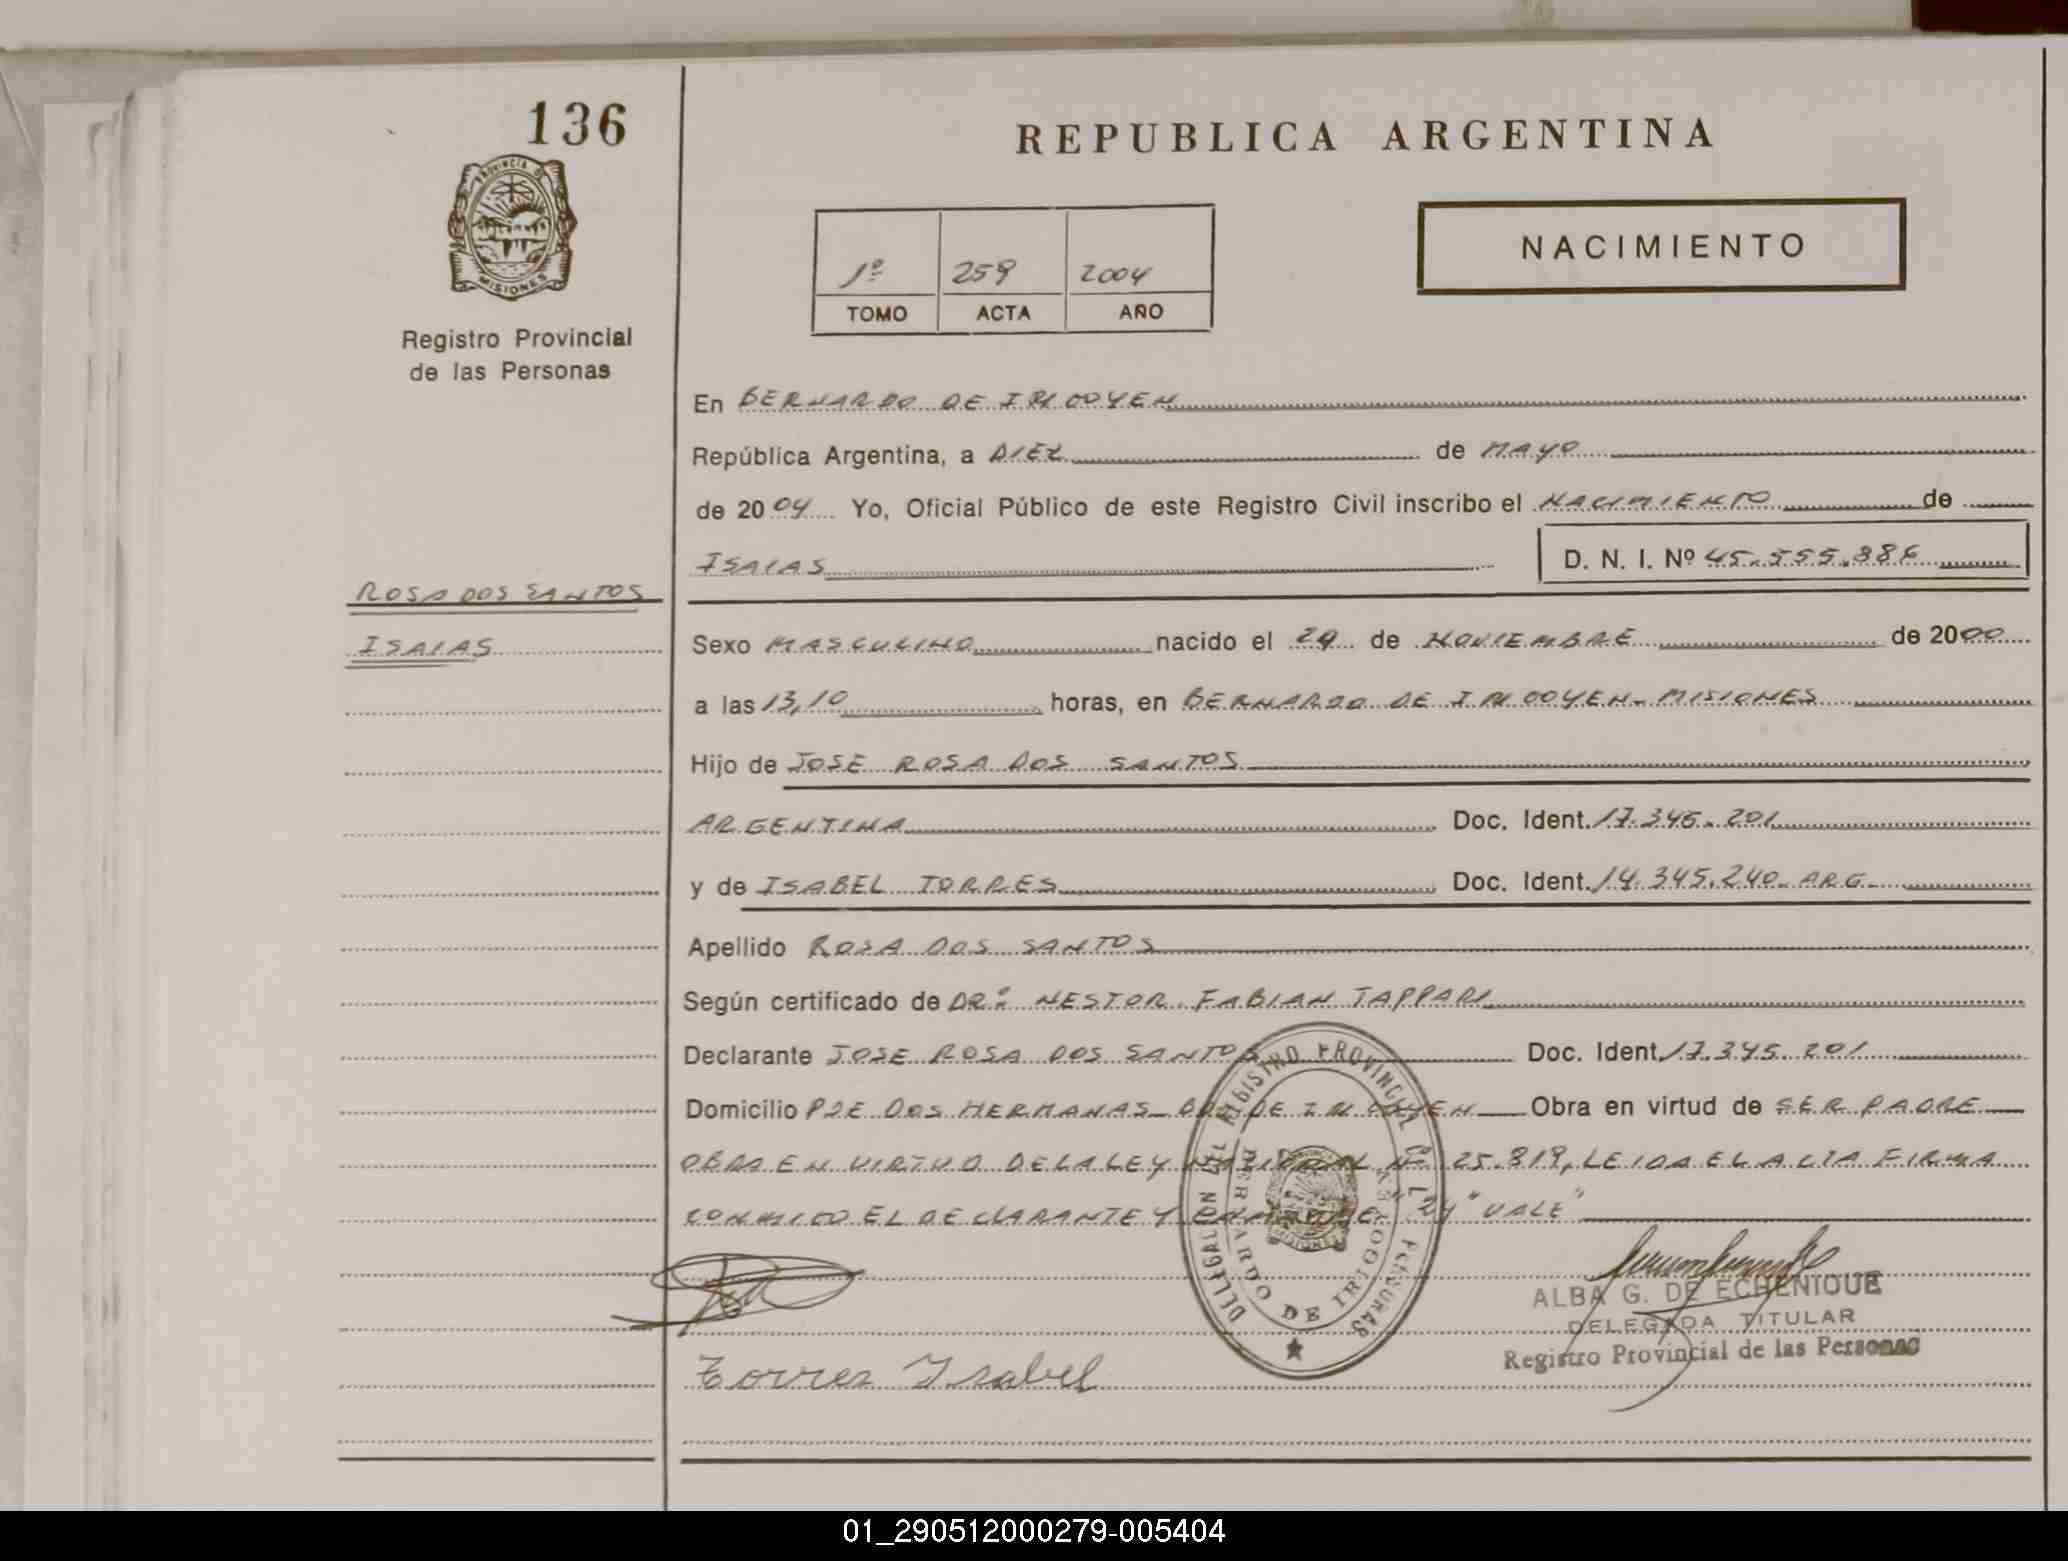 136
PROVINCIA DE
MISIONES
Registro Provincial
de las Personas
REPUBLICA ARGENTINA
1º 259 2004
TOMO ACTA AÑO
NACIMIENTO
En BERNARDO DE IRIGOYEN
República Argentina, a DIEZ de MAYO
de 2004 Yo, Oficial Público de este Registro Civil inscribo el NACIMIENTO de
ISAIAS D. N. I. Nº 45.555.886
ROSA DOS SANTOS
ISAIAS
Sexo MASCULINO nacido el 29 de NOVIEMBRE de 2000
a las 13,10 horas, en BERNARDO DE IRIGOYEN - MISIONES
Hijo de JOSE ROSA DOS SANTOS
ARGENTINA Doc. Ident. 17.345.201
y de ISABEL TORRES Doc. Ident. 14.345.240 - ARG -
Apellido ROSA DOS SANTOS
Según certificado de DR: NESTOR FABIAN TAPPARI
Declarante JOSE ROSA DOS SANTOS Doc. Ident. 17.345.201
Domicilio PJE DOS HERMANAS - BDO DE IRIGOYEN Obra en virtud de SER PADRE
OBRA EN VIRTUD DE LA LEY NACIONAL Nº 25.819, LEIDA EL ACTA FIRMA
CONMIGO EL DECLARANTE Y "VALE"
DELEGACION DEL REGISTRO PROVINCIAL DE LAS PERSONAS
BERNARDO DE IRIGOYEN
MISIONES
Torres Isabel
ALBA G. DE ECHENIQUE
DELEGADA TITULAR
Registro Provincial de las Personas
01_290512000279-005404